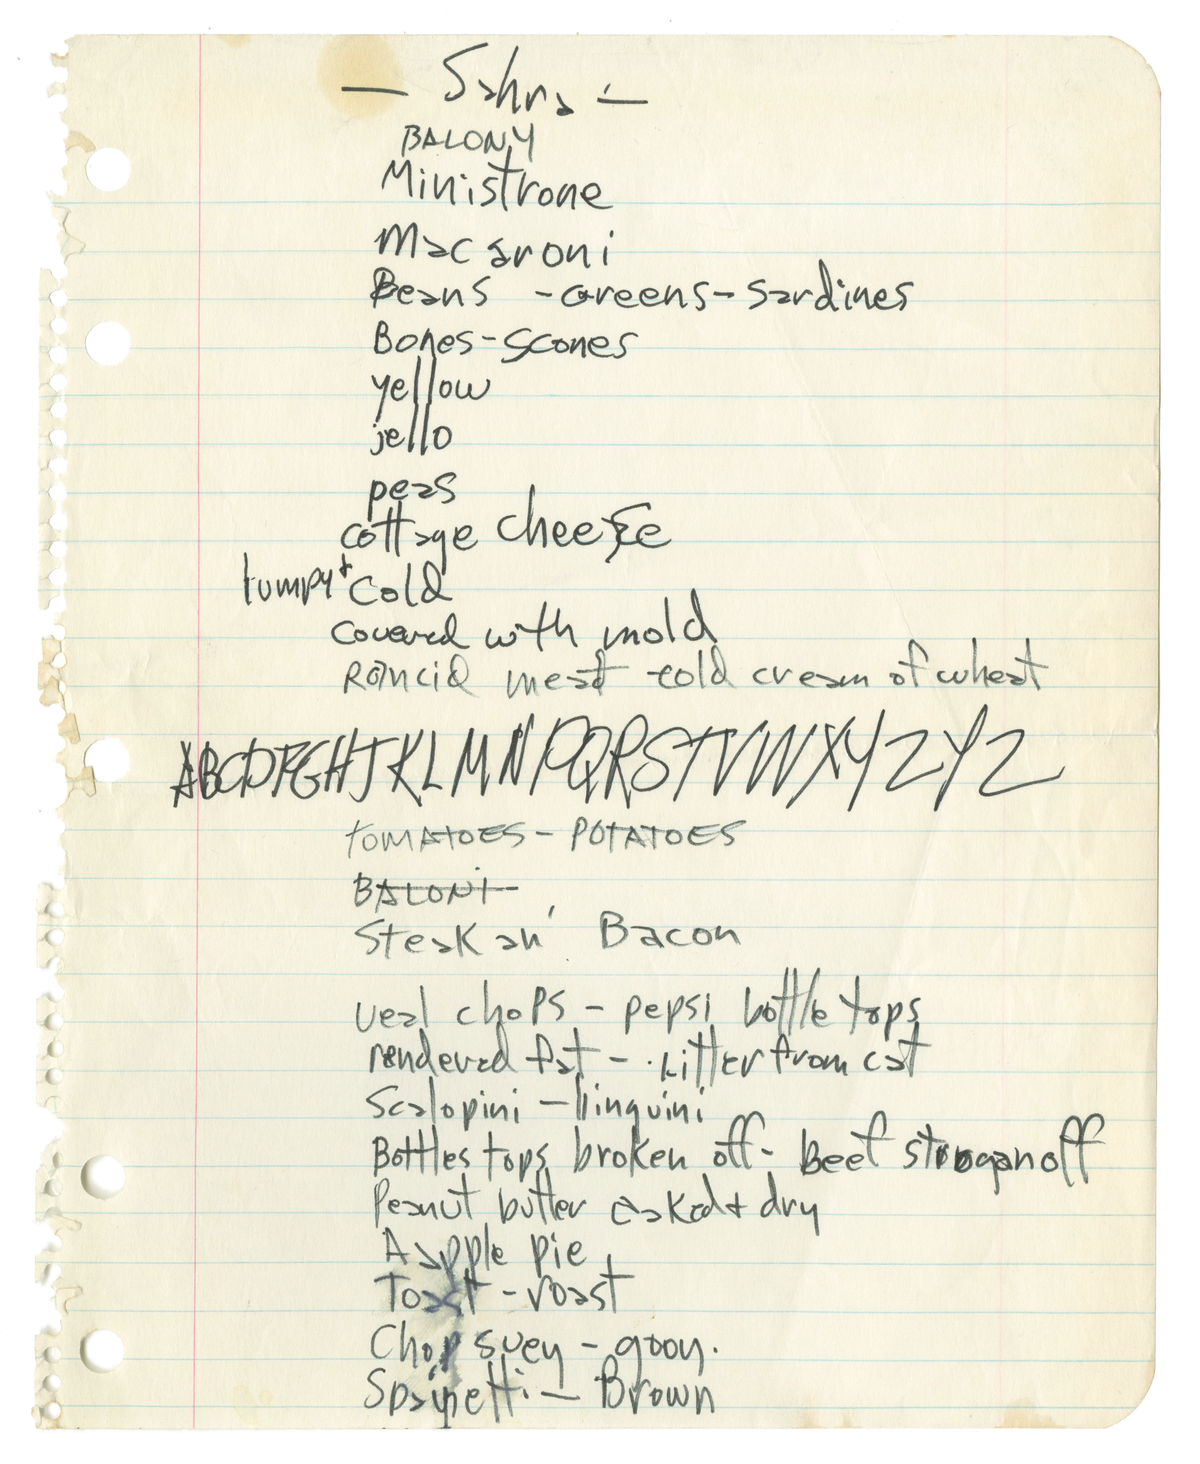 — Sahra —
BALONY
Ministrone
Macaroni
Beans - Greens - Sardines
Bones - Scones
yellow
jello
peas
cottage cheese
lumpy + cold
covered with mold
Rancid meat cold cream of wheat
ABCDFGHJKLMNPQRSTVWXYZYZ
TOMATOES - POTATOES
BALONY
Steak an' Bacon
veal chops - pepsi bottle tops
rendered fat - kitter from cat
Scalopini - linguini
Bottles tops broken off - beef stroganoff
Peanut butter caked + dry
A apple pie
Toast - roast
Chop suey - gooy.
Spaighetti — Brown